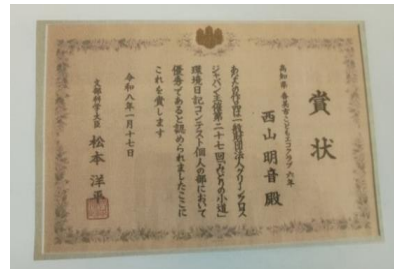 賞状
高知県 香美市こどもエコクラブ 六年
西山 明音 殿
あなたの作品は一般財団法人グリーンクロス
ジャパン主催第二十七回「みどりの小道」
環境日記コンテスト個人の部において
優秀であると認められましたここに
これを賞します
令和八年一月十七日
文部科学大臣 松本 洋平